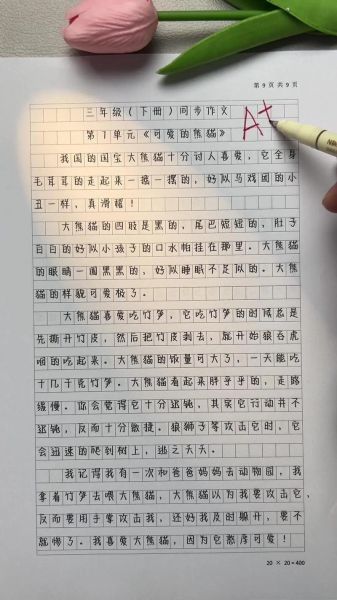 第9页 共9页
三年级(下册)同步作文
A+
第7单元《可爱的熊猫》
我国的国宝大熊猫十分讨人喜爱,它全身
毛茸茸的走起来一摇一摆的,好似马戏团的小
丑一样,真滑稽!
大熊猫的四肢是黑的,尾巴短短的,肚子
白白的好似小孩子的口水帕挂在那里。大熊猫
的眼睛一圈黑黑的,好似睡眠不足似的。大熊
猫的样貌可爱极了。
大熊猫喜爱吃竹笋,它吃竹笋的时候总是
先撕开竹皮,然后把竹皮剥去,就开始狼吞虎
咽的吃起来。大熊猫的饭量可大了,一天能吃
十几千克竹笋。大熊猫看起来胖乎乎的,走路
缓慢。你会觉得它十分迟钝,其实它行动并不
迟钝,反而十分敏捷。狼狮子等攻击它时,它
会迅速的爬到树上,逃之夭夭。
我记得我有一次和爸爸妈妈去动物园,我
拿着竹笋去喂大熊猫,大熊猫以为我要攻击它,
反而要用手掌攻击我,还好我及时躲开,要不
就惨了。我喜爱大熊猫,因为它憨厚可爱!
20 × 20 = 400